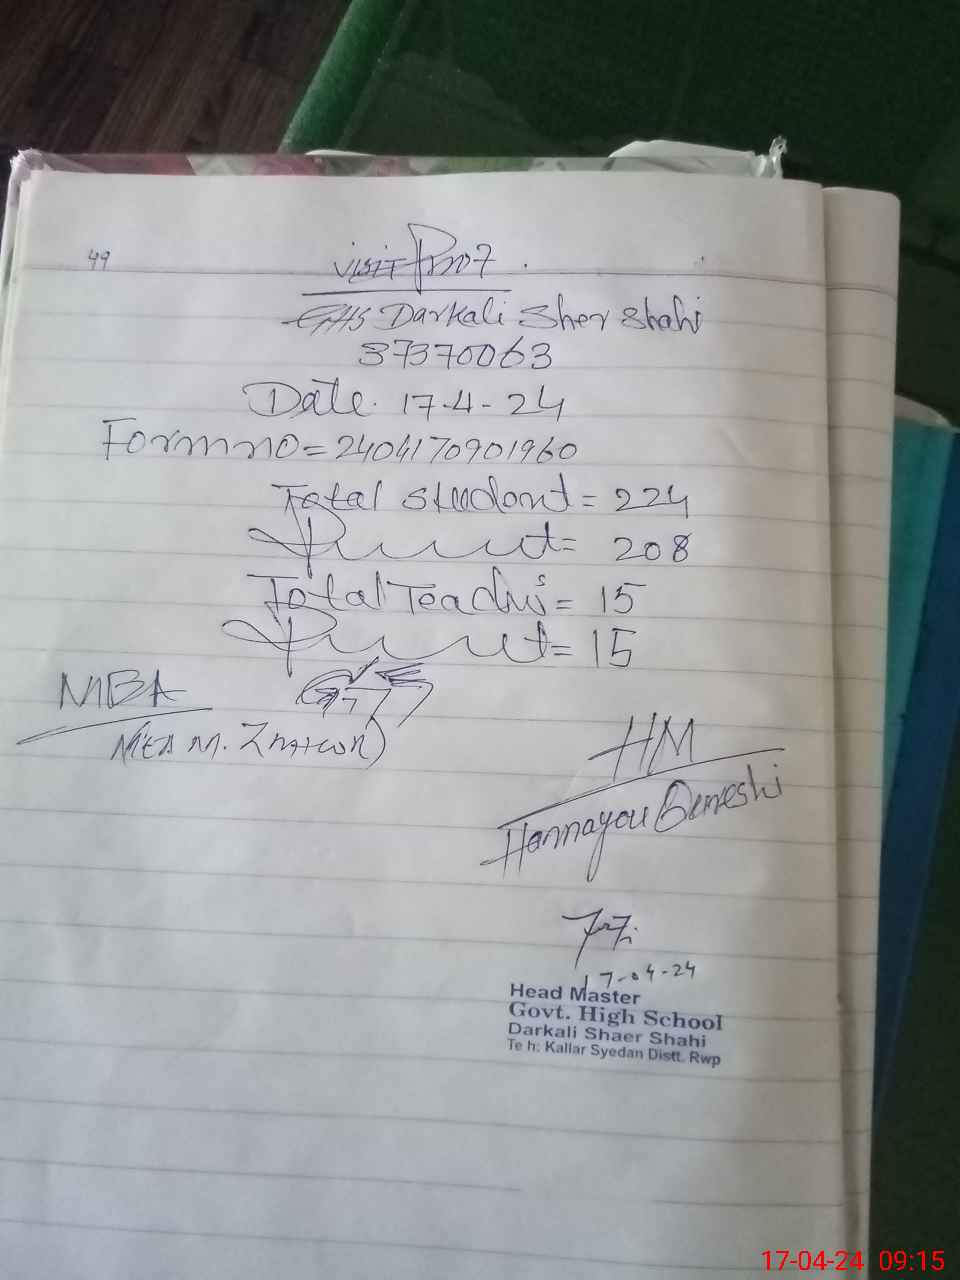 49
Visit Proof
GHS Darkali Sher Shahi
37370063
Date. 17-4-24
Form no = 2404170901960
Total Student = 224
Present = 208
Total Teachers = 15
Present = 15
MBA
HM
17-04-24
Head Master
Govt. High School
Darkali Shaer Shahi
Te h: Kallar Syedan Distt. Rwp
17-04-24 09:15